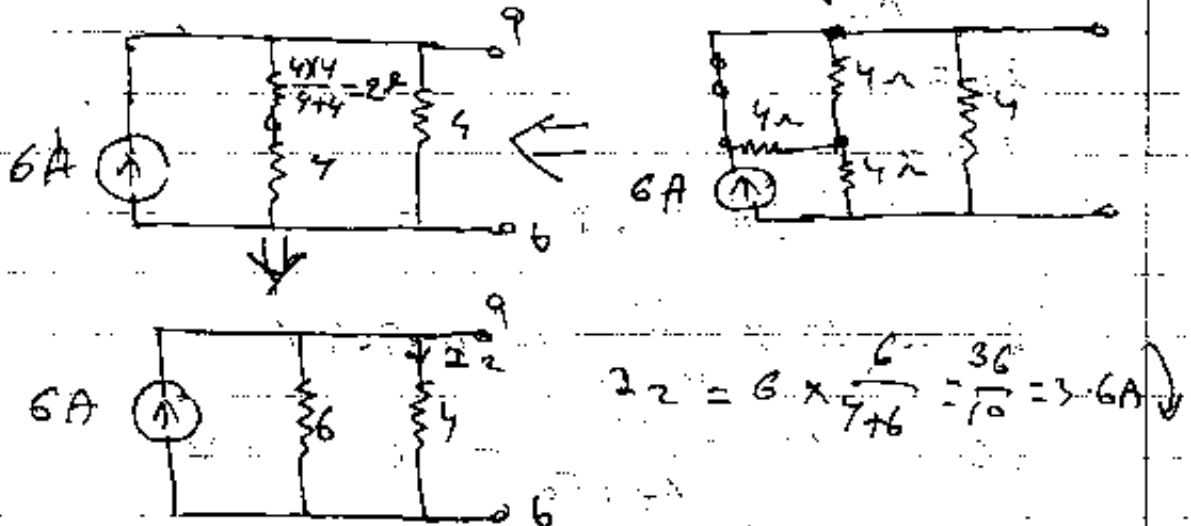 a
4×4/4+4 = 2Ω
4
4
6A
b
4Ω
4Ω
4Ω
4
6A
a
I2
6A
6
4
b
I2 = 6 × 6/4+6 = 36/10 = 3.6A